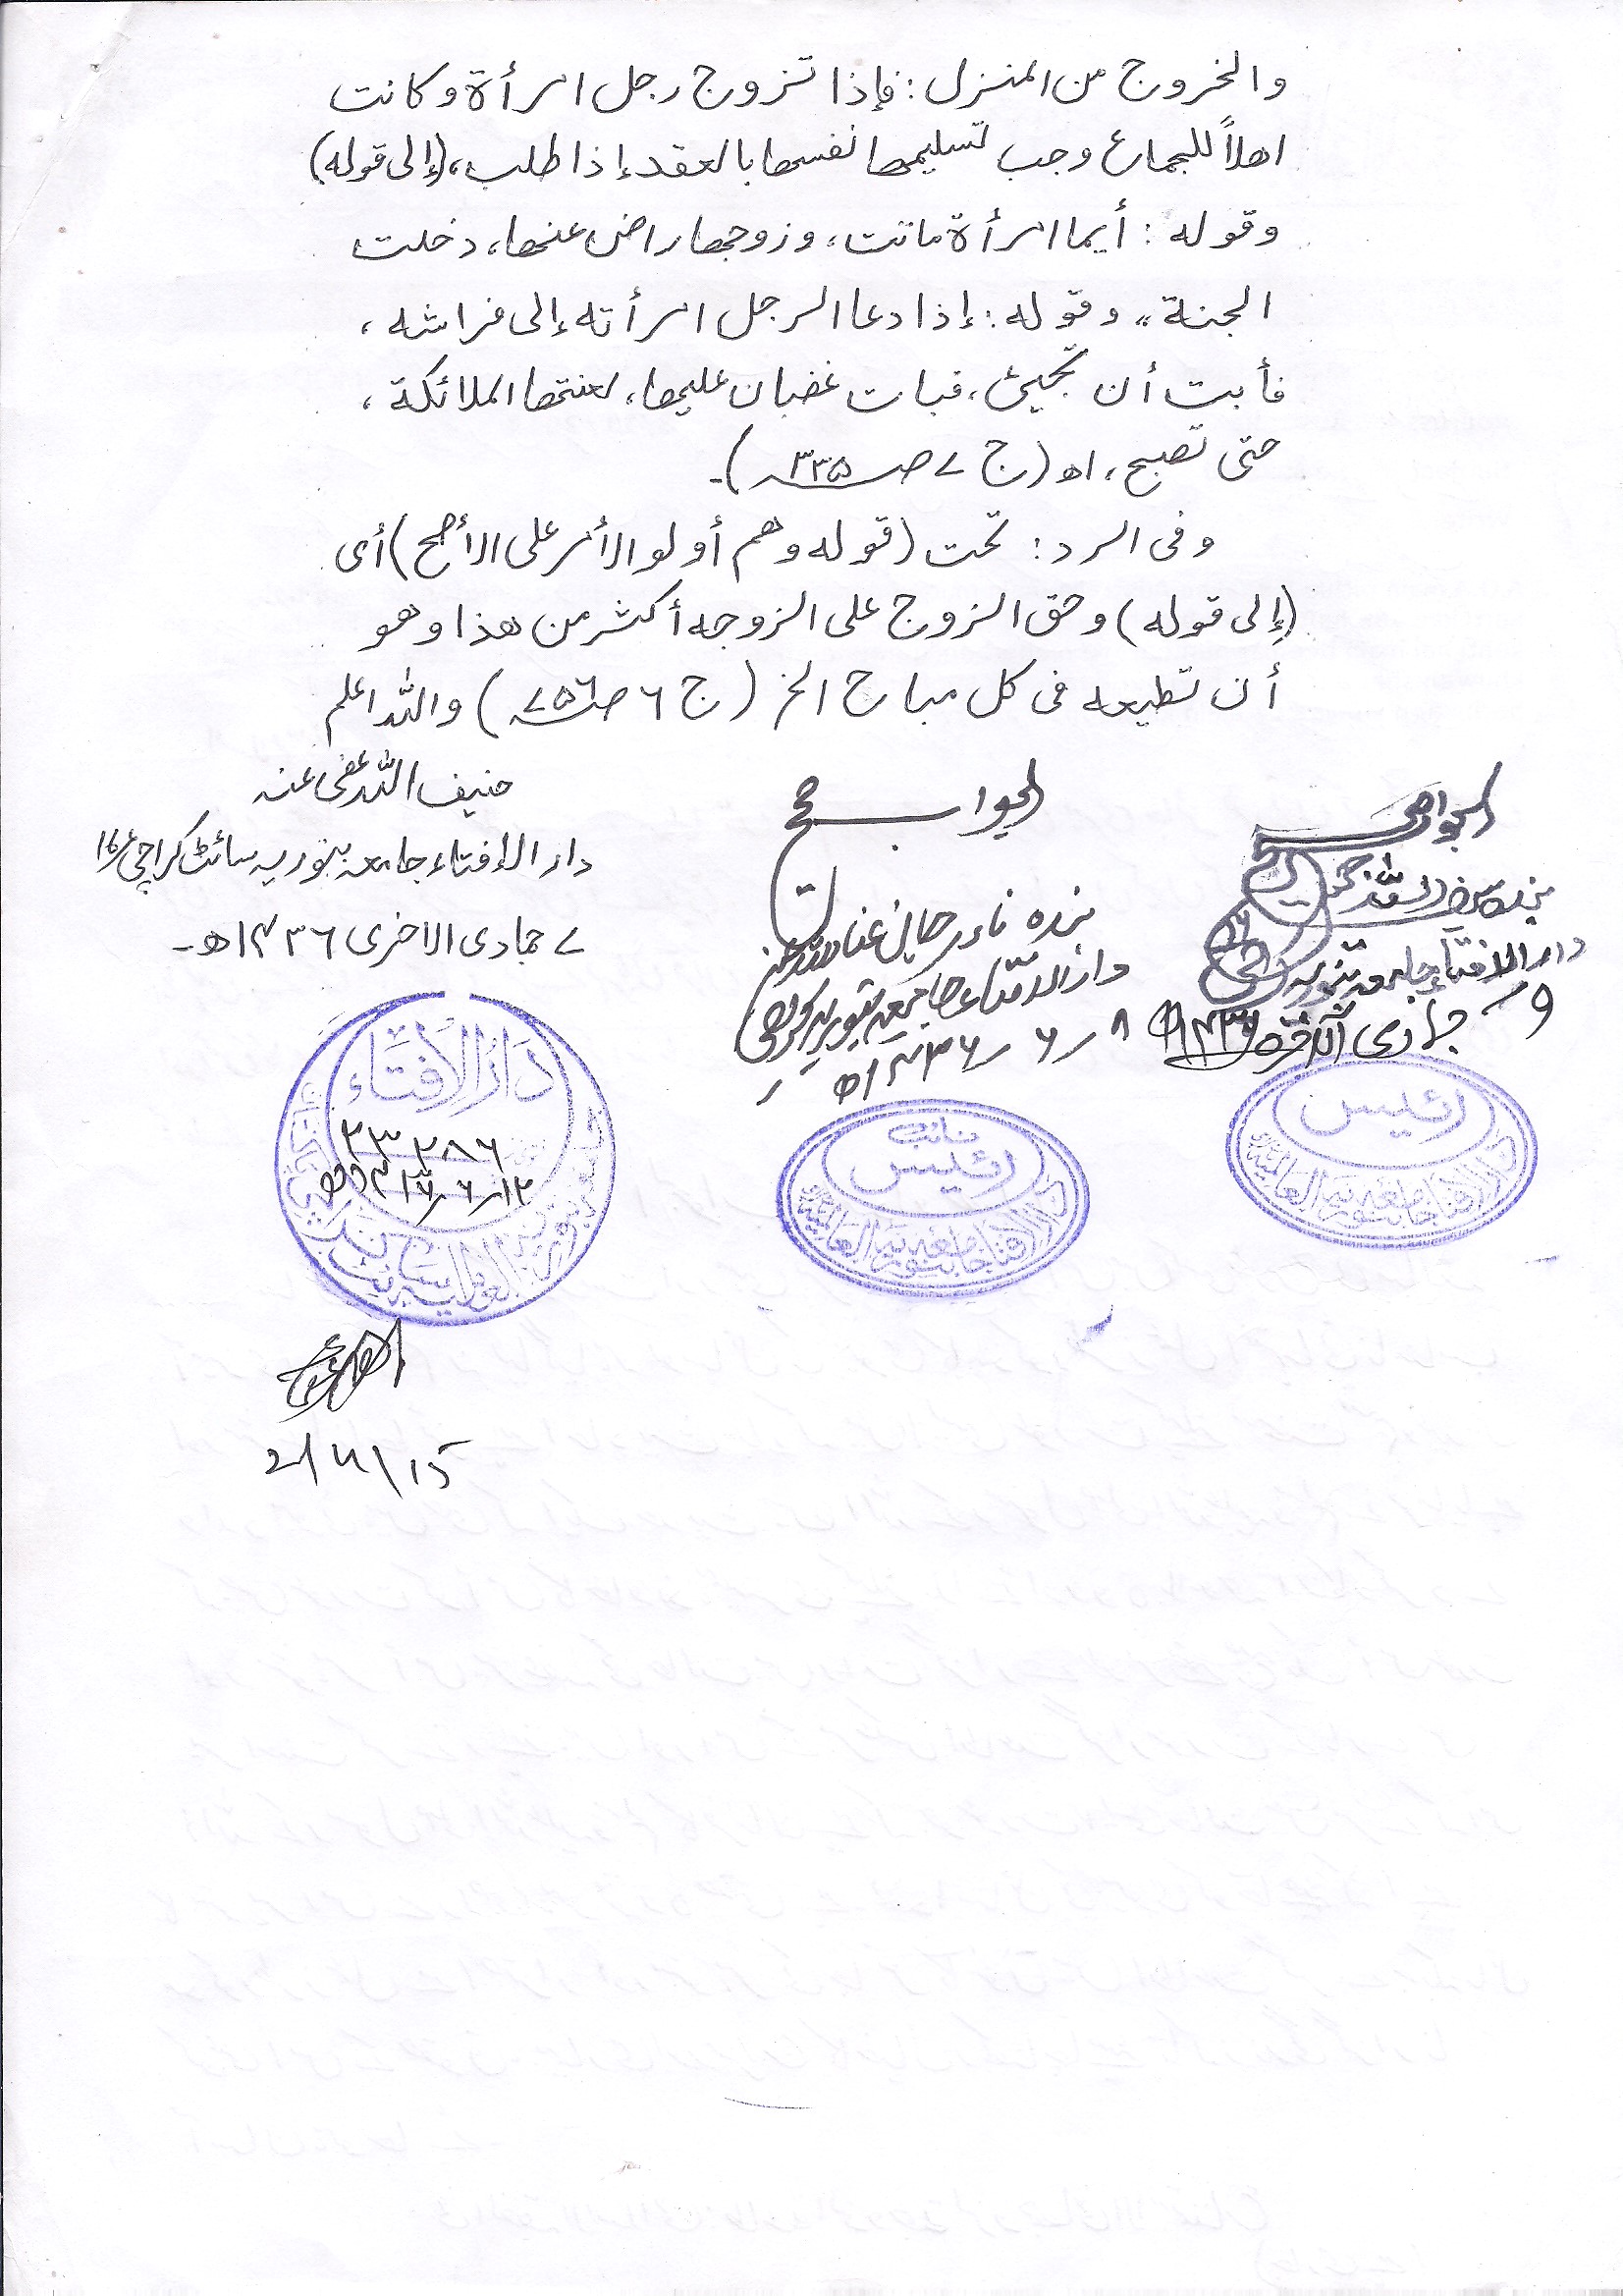 والخروج من المنزل: فإذا تزوج رجل امرأة وكانت
اهلاً للجماع وجب تسليمها نفسها بالعقد إذا طلب، (إلى قوله)
وقوله: أيما امرأة ماتت، وزوجها راض عنها، دخلت
الجنة" وقوله: إذا دعا الرجل امرأته إلى فراشه،
فأبت أن تجيئ، فبات غضبان عليها، لعنتها الملائكة،
حتى تصبح، اھ (ج ۷ صـ ۳۳۵)۔
وفى الرد: تحت (قوله وهم أولو الأمر على الأصح) أى
(إلى قوله) وحق الزوج على الزوجه أكثر من هذا وهو
أن تطيعه فى كل مباح الخ (ج ۶ صـ ۷۵۶) والله اعلم
حنيف الله عفى عنه
دار الإفتاء جامعہ بنوریہ سائٹ کراچی ۱۶
۷ جمادى الاخرى ۱۴۳۶ھ۔
الجواب صحيح
بندہ
دار الافتاء جامعہ بنوریہ
۹ جمادی الآخرہ ۱۴۳۶ھ
الجواب صحيح
بندہ نادر جان عفا اللہ عنہ
دار الافتاء جامعہ بنوریہ کراچی
۸ / ۶ / ۱۴۳۶ھ
رئيس
دار الافتاء جامعه بنوريه العالمية
نائب
رئيس
دار الافتاء جامعه بنوريه العالمية
دَارُ الإفتَاء
۲۳۲۸۶
۱۲/۶/۱۴۳۶ھ
2/4/15